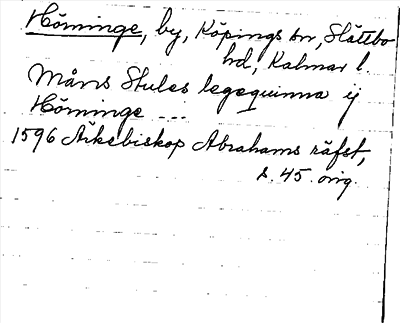 Höminge, by, Köpings sn, Slättbo
hd, Kalmar l.
Måns Stules legequinna ij
Höminge ...
1596 Ärkebiskop Abrahams räfst,
s. 45. orig.